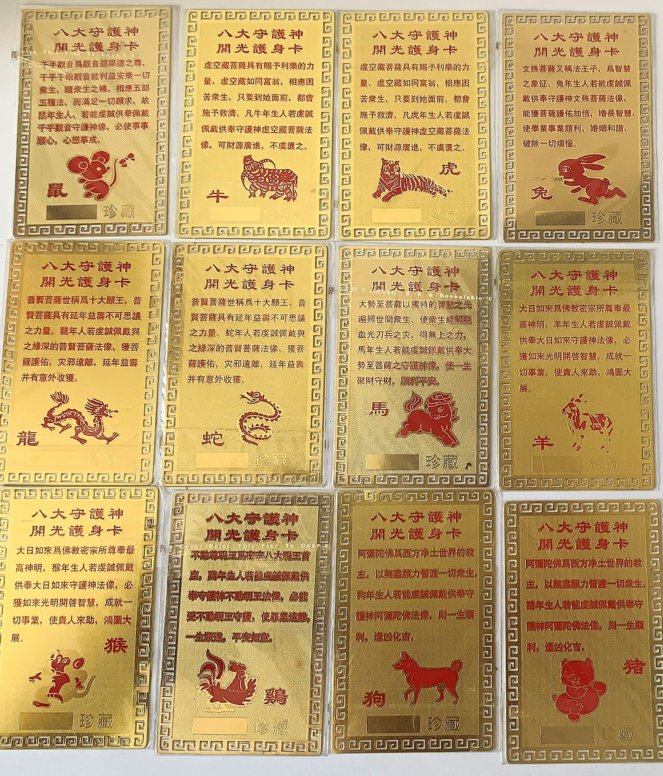 八大守護神
開光護身卡
千手觀音爲觀音部果德之尊，
千手千眼觀音能利益安樂一切
衆生，隨衆生之機，相應五部
五種法，而滿足一切願求，故
鼠年生人，若能虔誠供奉佩戴
千手觀音守護神像，必使事事
順心，心想事成。
鼠
珍藏
八大守護神
開光護身卡
虛空藏菩薩具有賜予利樂的力
量，虛空藏如同富翁，相應困
苦衆生，只要到她面前，都會
施予救濟，凡牛年生人若虔誠
佩戴供奉守護神虛空藏菩薩法
像，可財源廣進，不虞匱乏。
牛
珍藏
八大守護神
開光護身卡
虛空藏菩薩具有賜予利樂的力
量、虛空藏如同富翁、相應困
苦衆生、只要到她面前、都會
施予救濟、凡虎年生人若虔誠
佩戴供奉守護神虛空藏菩薩法
像、可財源廣進、不虞匱乏。
虎
珍藏
八大守護神
開光護身卡
文殊菩薩又稱法王子、爲智慧
之象征、兔年生人若能虔誠佩
戴供奉守護神文殊菩薩法像、
能獲菩薩護佑加倍、增長智慧、
使學業事業順利、婚姻和諧、
破除一切煩惱。
兔
珍藏
八大守護神
開光護身卡
普賢菩薩世稱爲十大願王、普
賢菩薩具有延年益壽不可思議
之力量。龍年人若虔誠佩戴與
之緣深的普賢菩薩法像、獲菩
薩護佑、灾邪遠離、延年益壽
并有意外收獲。
龍
八大守護神
開光護身卡
普賢菩薩世稱爲十大願王、普
賢菩薩具有延年益壽不可思議
之力量、蛇年人若虔誠佩戴與
之緣深的普賢菩薩法像、獲菩
薩護佑、灾邪遠離、延年益壽
并有意外收獲。
蛇
珍藏
八大守護神
開光護身卡
大勢至菩薩以獨特的智慧之光
遍照世間衆生、使衆生能解脱
血光刃兵之灾、得無上之力。
馬年生人若能虔誠佩戴供奉大
勢至菩薩之守護神像，使一生
聚財守財，順利平安。
馬
珍藏
八大守護神
開光護身卡
大日如來爲佛教密宗所尊奉最
高神明，羊年生人若虔誠佩戴
供奉大日如來守護神法像，必
獲如來光明開啓智慧，成就一
切事業，使貴人來助，鴻圖大
展。
羊
珍藏
八大守護神
開光護身卡
大日如來爲佛教密宗所尊奉最
高神明，猴年生人若虔誠佩戴
供奉大日如來守護神法像，必
獲如來光明開啓智慧，成就一
切事業，使貴人來助，鴻圖大
展。
猴
珍藏
八大守護神
開光護身卡
不動尊明王爲密宗八大明王首
座，鷄年生人若能虔誠佩戴供
奉守護神不動明王法像，必能
受不動明王守護，使罪業遠離，
一生順遂，平安如意。
鷄
珍藏
八大守護神
開光護身卡
阿彌陀佛爲西方净土世界的教
主，以無盡願力誓渡一切衆生，
狗年生人若能虔誠佩戴供奉守
護神阿彌陀佛法像，則一生順
利，逢凶化吉。
狗
珍藏
八大守護神
開光護身卡
阿彌陀佛爲西方净土世界的教
主，以無盡願力誓渡一切衆生，
猪年生人若能虔誠佩戴供奉守
護神阿彌陀佛法像，則一生順
利，逢凶化吉。
猪
珍藏